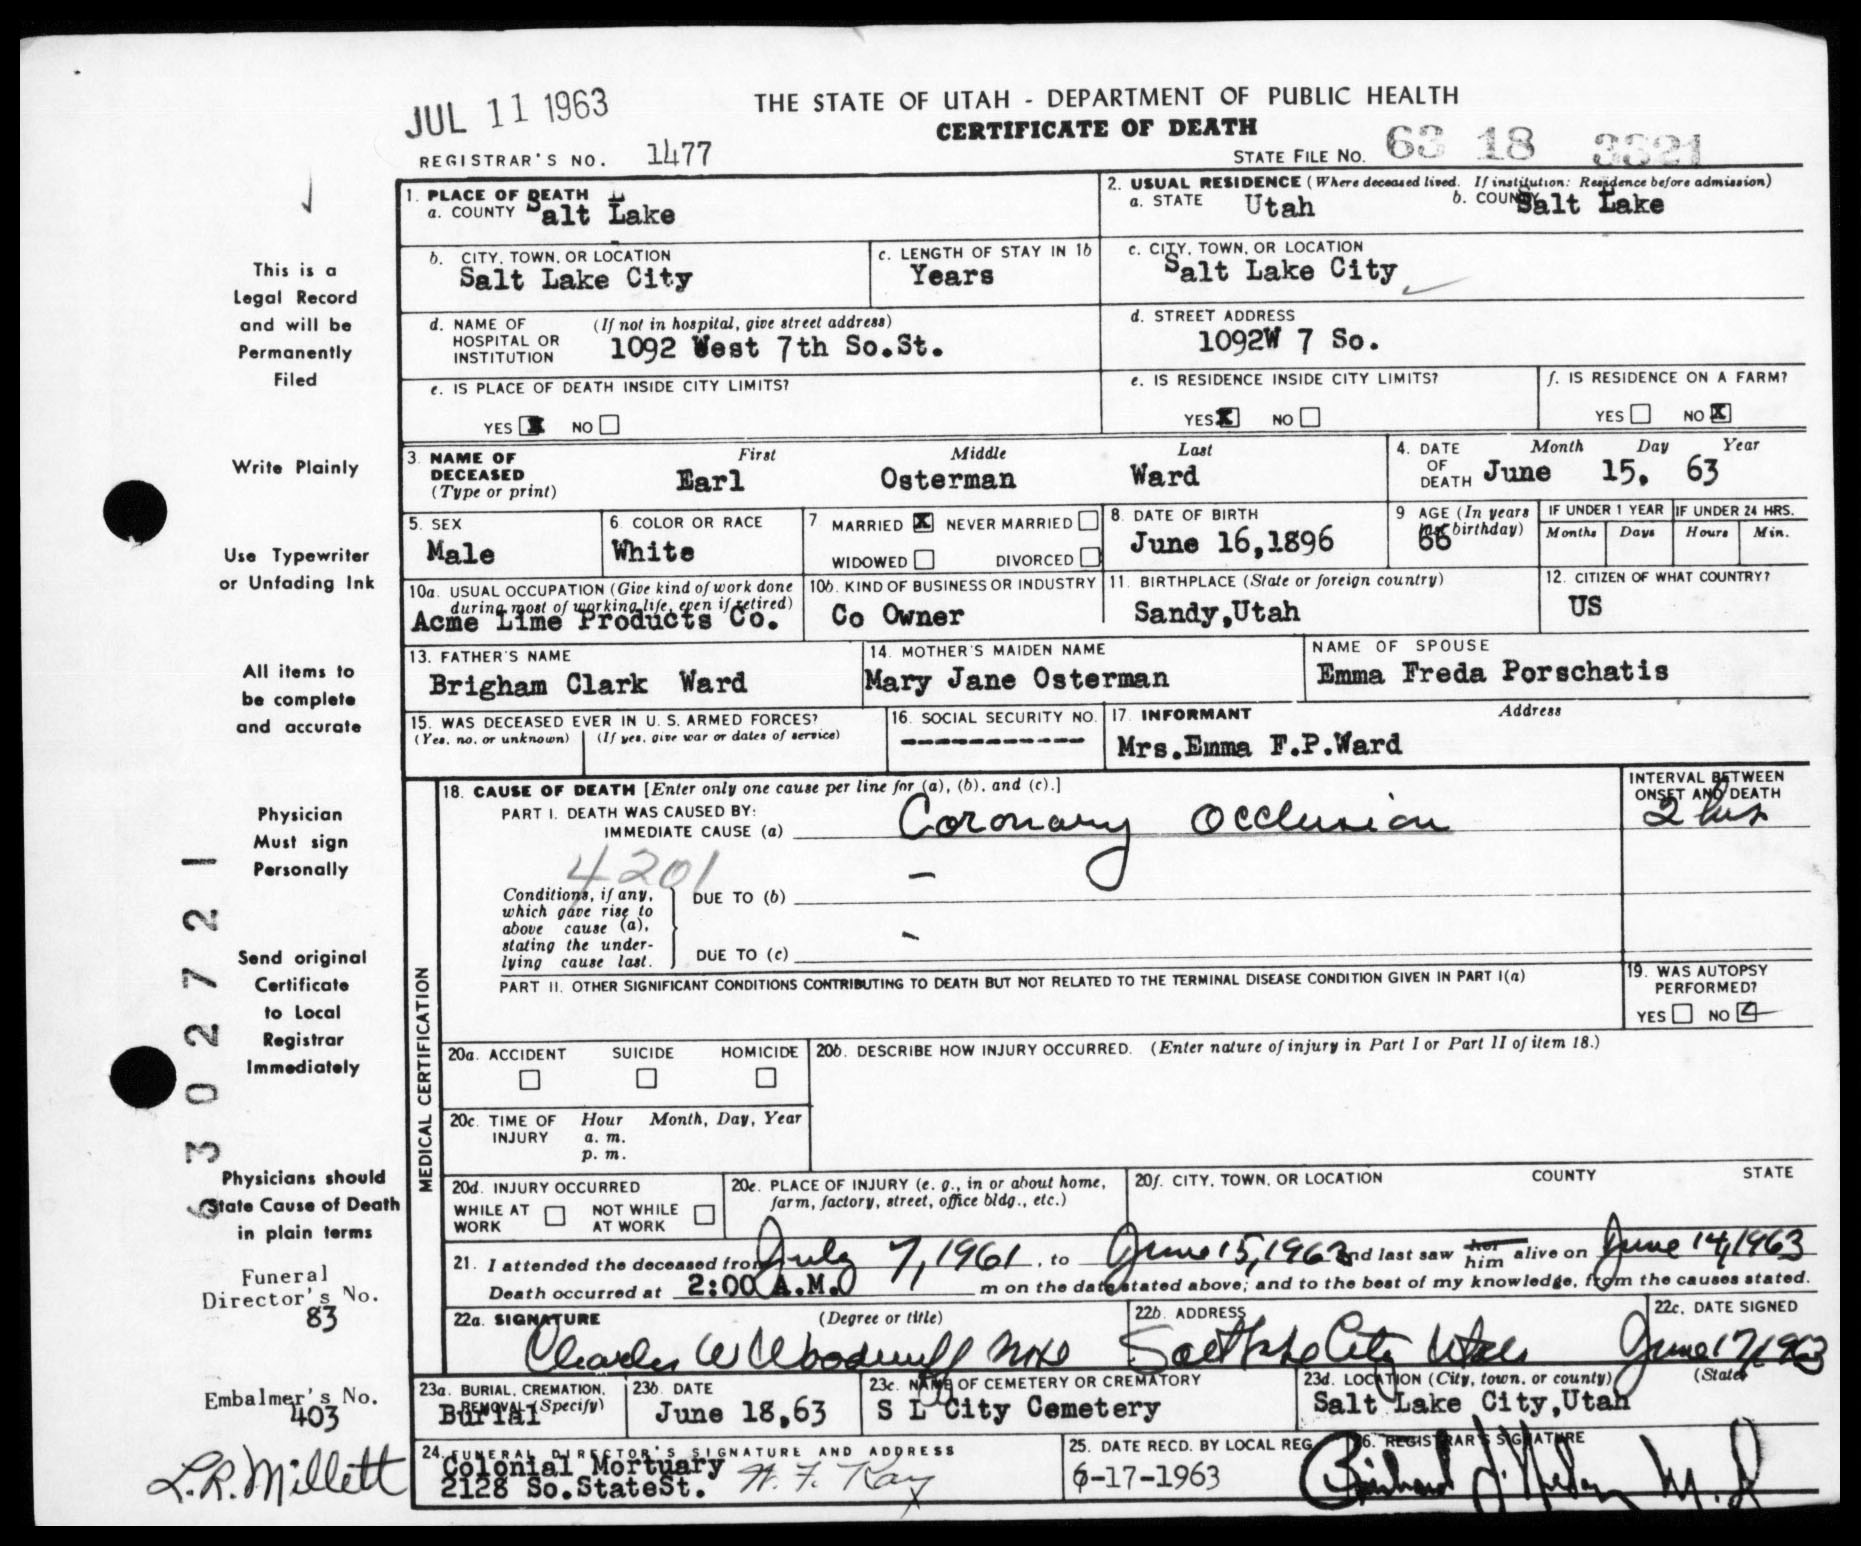 JUL 11 1963
THE STATE OF UTAH - DEPARTMENT OF PUBLIC HEALTH
CERTIFICATE OF DEATH
REGISTRAR'S NO. 1477
STATE FILE NO. 63 18 3321
1. PLACE OF DEATH
a. COUNTY Salt Lake
2. USUAL RESIDENCE (Where deceased lived. If institution: Residence before admission)
a. STATE Utah b. COUNTY Salt Lake
b. CITY, TOWN, OR LOCATION
Salt Lake City
c. LENGTH OF STAY IN 1b
Years
c. CITY, TOWN, OR LOCATION
Salt Lake City
d. NAME OF HOSPITAL OR INSTITUTION (If not in hospital, give street address)
1092 West 7th So.St.
d. STREET ADDRESS
1092W 7 So.
e. IS PLACE OF DEATH INSIDE CITY LIMITS?
YES X NO
e. IS RESIDENCE INSIDE CITY LIMITS?
YES X NO
f. IS RESIDENCE ON A FARM?
YES NO X
3. NAME OF DECEASED (Type or print)
First Middle Last
Earl Osterman Ward
4. DATE OF DEATH Month Day Year
June 15, 63
5. SEX
Male
6. COLOR OR RACE
White
7. MARRIED X NEVER MARRIED
WIDOWED DIVORCED
8. DATE OF BIRTH
June 16,1896
9 AGE (In years last birthday)
66
IF UNDER 1 YEAR
Months Days
IF UNDER 24 HRS.
Hours Min.
10a. USUAL OCCUPATION (Give kind of work done during most of working life, even if retired)
Acme Lime Products Co.
10b. KIND OF BUSINESS OR INDUSTRY
Co Owner
11. BIRTHPLACE (State or foreign country)
Sandy,Utah
12. CITIZEN OF WHAT COUNTRY?
US
13. FATHER'S NAME
Brigham Clark Ward
14. MOTHER'S MAIDEN NAME
Mary Jane Osterman
NAME OF SPOUSE
Emma Freda Porschatis
15. WAS DECEASED EVER IN U. S. ARMED FORCES?
(Yes, no, or unknown) (If yes, give war or dates of service)
16. SOCIAL SECURITY NO.
------------
17. INFORMANT Address
Mrs.Emma F.P.Ward
MEDICAL CERTIFICATION
18. CAUSE OF DEATH [Enter only one cause per line for (a), (b), and (c).]
PART I. DEATH WAS CAUSED BY:
IMMEDIATE CAUSE (a) Coronary Occlusion
INTERVAL BETWEEN ONSET AND DEATH
2 hrs
4201
Conditions, if any,
which gave rise to
above cause (a),
stating the under-
lying cause last.
DUE TO (b) -
DUE TO (c) -
PART II. OTHER SIGNIFICANT CONDITIONS CONTRIBUTING TO DEATH BUT NOT RELATED TO THE TERMINAL DISEASE CONDITION GIVEN IN PART I(a)
19. WAS AUTOPSY PERFORMED?
YES NO
20a. ACCIDENT SUICIDE HOMICIDE
20b. DESCRIBE HOW INJURY OCCURRED. (Enter nature of injury in Part I or Part II of item 18.)
20c. TIME OF INJURY Hour Month, Day, Year
a. m.
p. m.
20d. INJURY OCCURRED
WHILE AT WORK NOT WHILE AT WORK
20e. PLACE OF INJURY (e. g., in or about home, farm, factory, street, office bldg., etc.)
20f. CITY, TOWN, OR LOCATION COUNTY STATE
21. I attended the deceased from July 7, 1961, to June 15, 1963 and last saw her him alive on June 14, 1963
Death occurred at 2:00 A.M. m on the date stated above; and to the best of my knowledge, from the causes stated.
22a. SIGNATURE (Degree or title)
Charles W Woodruff MD
22b. ADDRESS
Salt Lake City Utah
22c. DATE SIGNED
June 17, 1963
23a. BURIAL, CREMATION, REMOVAL (Specify)
Burial
23b. DATE
June 18,63
23c. NAME OF CEMETERY OR CREMATORY
S L City Cemetery
23d. LOCATION (City, town, or county) (State)
Salt Lake City,Utah
24. FUNERAL DIRECTOR'S SIGNATURE AND ADDRESS
Colonial Mortuary
2128 So.StateSt.
25. DATE RECD. BY LOCAL REG.
6-17-1963
26. REGISTRAR'S SIGNATURE
This is a
Legal Record
and will be
Permanently
Filed
Write Plainly
Use Typewriter
or Unfading Ink
All items to
be complete
and accurate
Physician
Must sign
Personally
Send original
Certificate
to Local
Registrar
Immediately
Physicians should
State Cause of Death
in plain terms
Funeral
Director's No.
83
Embalmer's No.
403
L.R. Millett
6302721